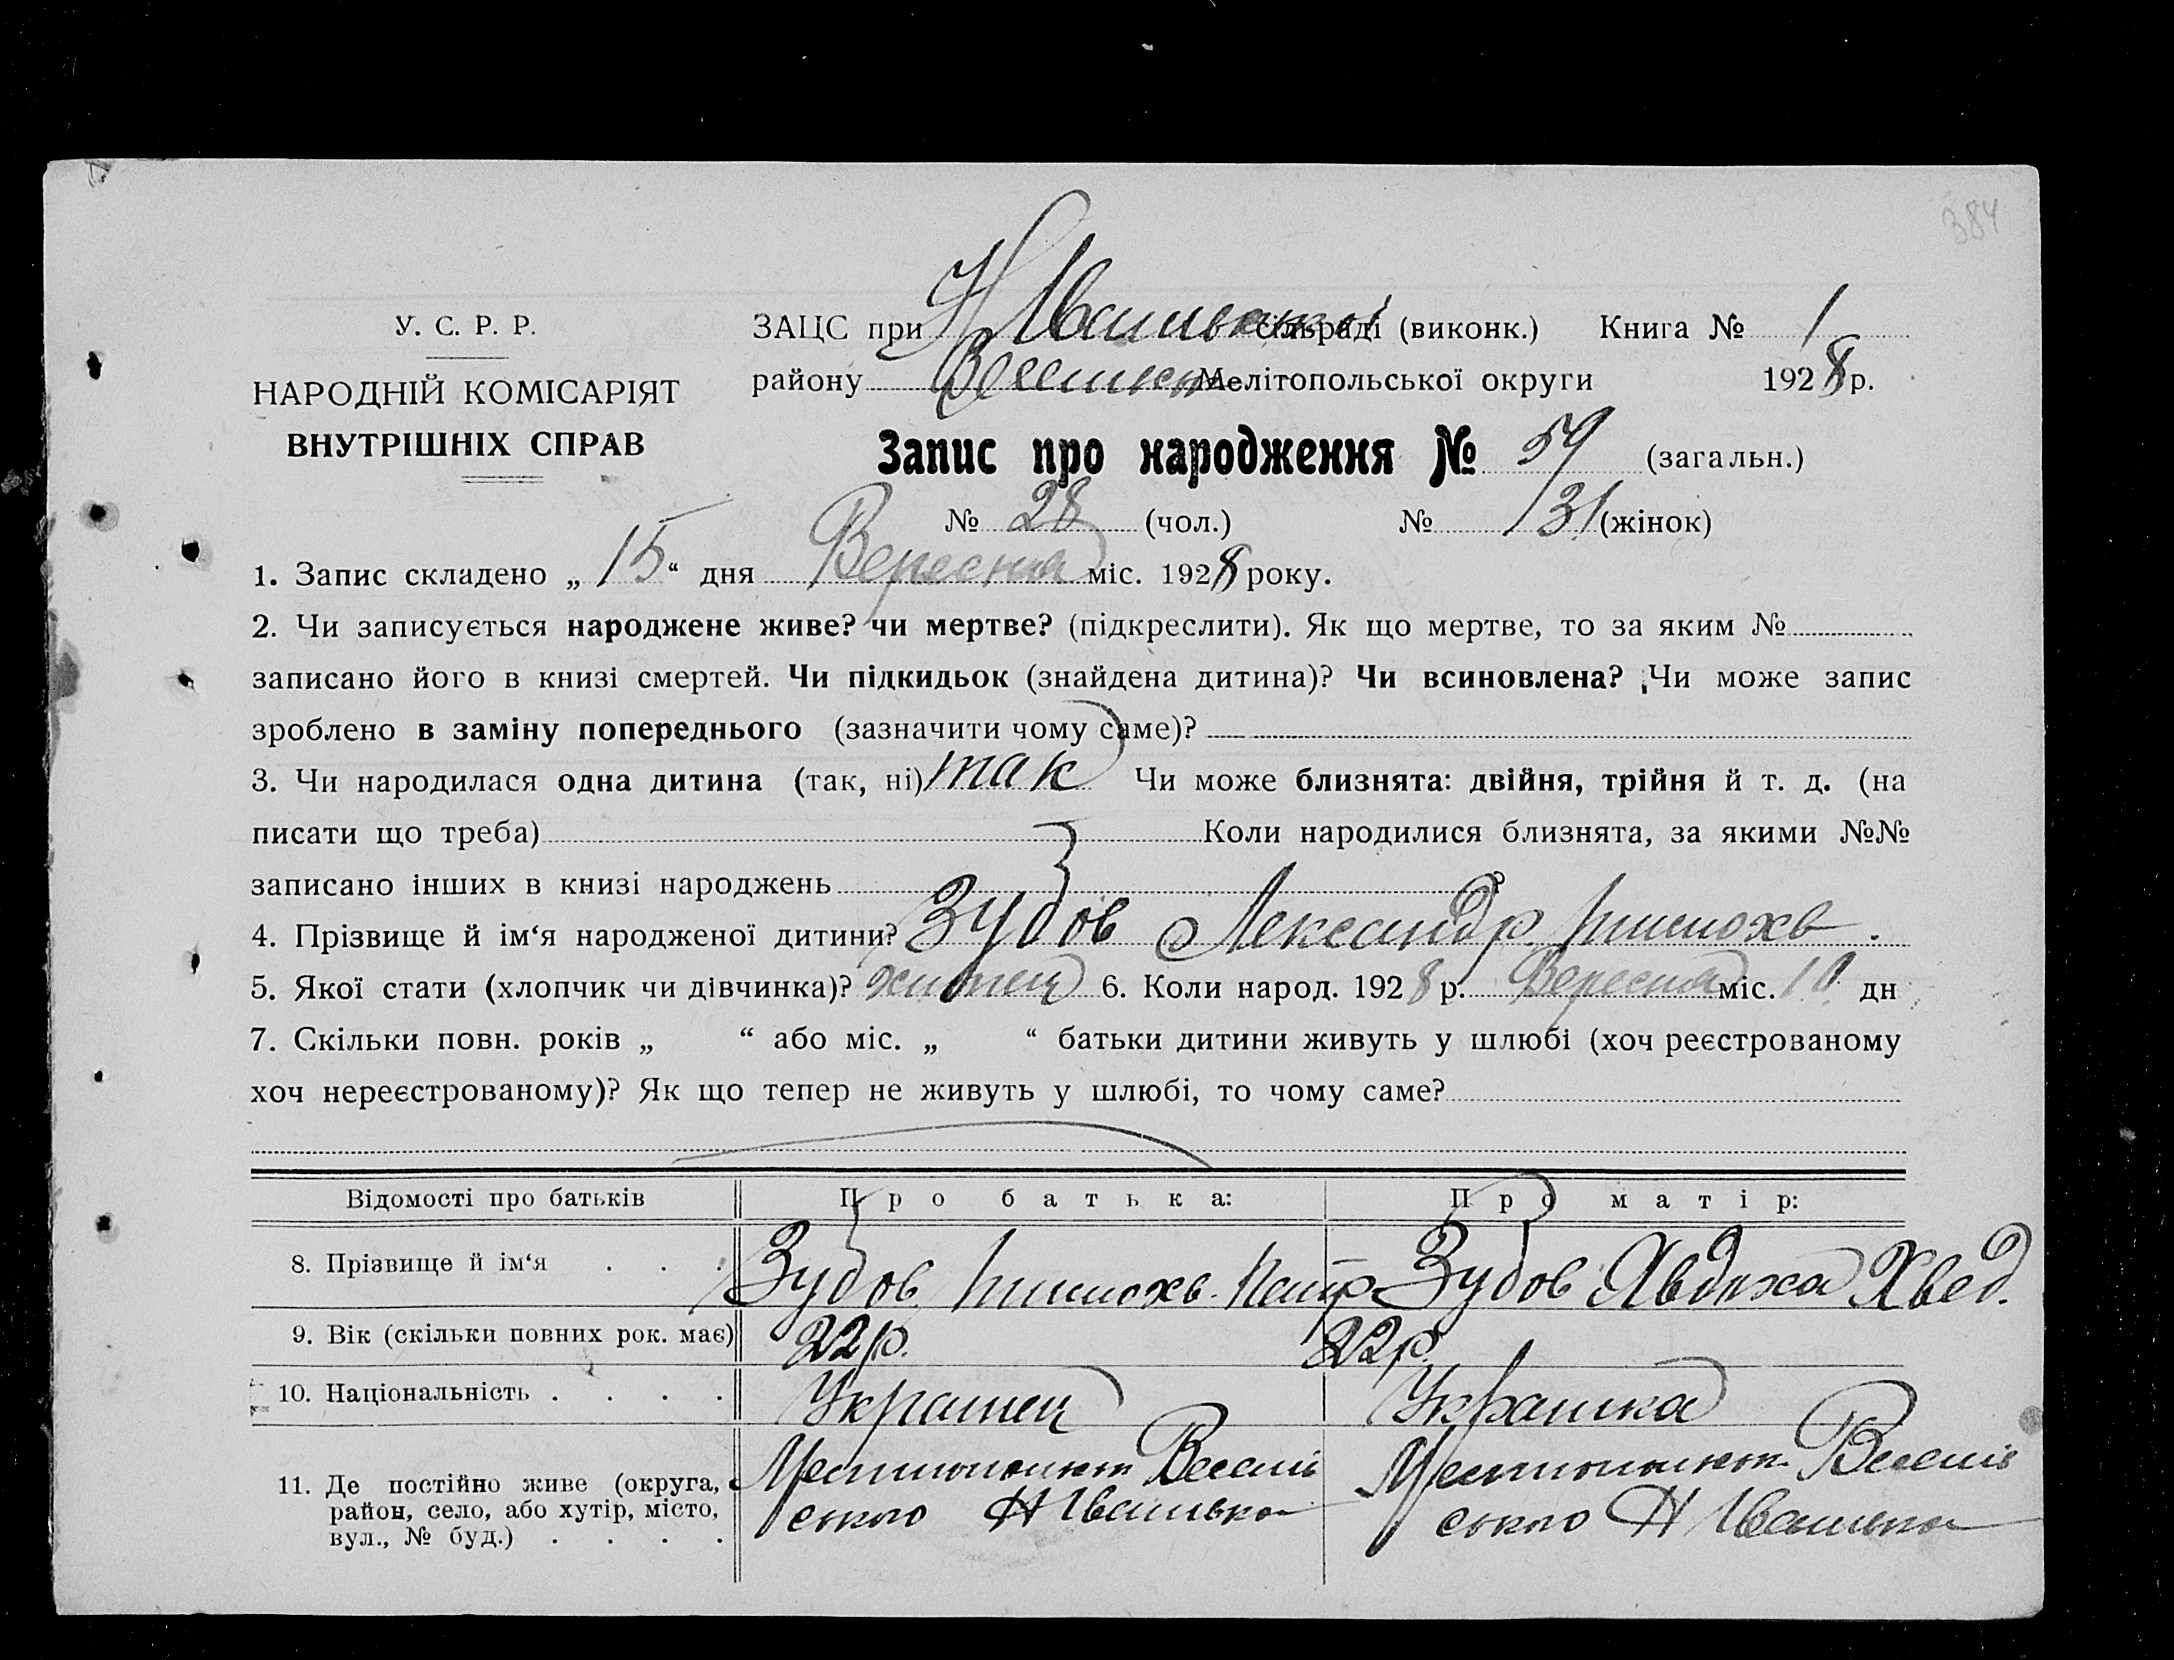 384
У. С. Р. Р.
НАРОДНІЙ КОМІСАРІЯТ
ВНУТРІШНІХ СПРАВ
ЗАЦС при Н Іванівській сільраді (виконк.) Книга № 1
району Веселів Мелітопольської округи 1928 р.
Запис про народження № 59 (загальн.)
№ 28 (чол.) № 31 (жінок)
1. Запис складено „ 15 “ дня Вересня міс. 1928 року.
2. Чи записується народжене живе? чи мертве? (підкреслити). Як що мертве, то за яким №
записано його в книзі смертей. Чи підкидьок (знайдена дитина)? Чи всиновлена? Чи може запис
зроблено в заміну попереднього (зазначити чому саме)?
3. Чи народилася одна дитина (так, ні) так Чи може близнята: двійня, трійня й т. д. (на
писати що треба) Коли народилися близнята, за якими №№
записано інших в книзі народжень
4. Прізвище й ім‘я народженої дитини? Зубов Лександр Тимохв.
5. Якої стати (хлопчик чи дівчинка)? 6. Коли народ. 1928 р. Вересня міс. 10 дн
7. Скільки повн. років „ “ або міс. „ “ батьки дитини живуть у шлюбі (хоч реєстрованому
хоч нереєстрованому)? Як що тепер не живуть у шлюбі, то чому саме?
Відомості про батьків Про батька: Про матір:
8. Прізвище й ім‘я . . . Зубов Тимохв. Петр Зубов Явдоха Хвед.
9. Вік (скільки повних рок. має) 22 р. 22 р.
10. Національність . . . . Українец Українка
11. Де постійно живе (округа, Мелитопольск Веселів Мелитопольск Веселів
район, село, або хутір, місто, ського Н Іванівка ського Н Іванівка
вул., № буд.) . . . .